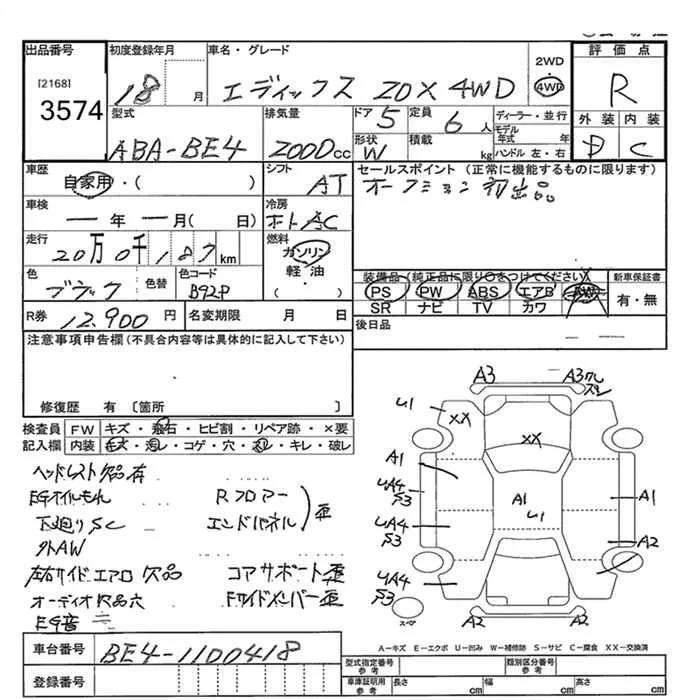 出品番号
[2168]
3574
初度登録年月
18 月
車名・グレード
エディックス 20X 4WD
2WD
4WD
評価点
R
外装 内装
D C
型式
ABA-BE4
排気量
2000cc
ドア 5
定員 6 人
形状 W
積載 kg
ディーラー・並行
モデル年式 年
ハンドル 左・右
車歴
自家用・( )
シフト
AT
車検
ー 年 ー 月( 日)
冷房
AC
走行
20万0千187km
燃料
ガソリン
軽・油
( )
色
ブラック
色替
色コード
B92P
R券 12,900 円
名変期限 月 日
セールスポイント(正常に機能するものに限ります)
オークション初出品
装備品(純正品に限り○をつけてください)
PS PW ABS エアB AW
SR ナビ TV カワ
新車保証書
有・無
後日品
注意事項申告欄(不具合内容等は具体的に記入して下さい)
修復歴 有〔箇所 〕
検査員記入欄
FW キズ・飛石・ヒビ割・リペア跡・×要
内装 キズ・汚レ・コゲ・穴・スレ・キレ・破レ
ヘッドレスト欠品有
EGオイルもれ
下廻りSC
外AW
左右サイドエアロ欠品
オーディオ欠品穴
EG音
Rフロアー
エンドパネル
歪
コアサポート歪
Fサイドメンバー歪
A3
A3
U1
XX
XX
A1
UA4
S3
A1
U1
A1
UA4
S3
A2
UA4
S3
スペア
A2
A2
A-キズ E-エクボ U-凹み W-補修跡 S-サビ C-腐食 XX-交換済
車台番号 BE4-1100418
登録番号
型式指定番号
参考
類別区分番号
参考
車庫証明用
参考
長さ cm
幅 cm
高さ cm